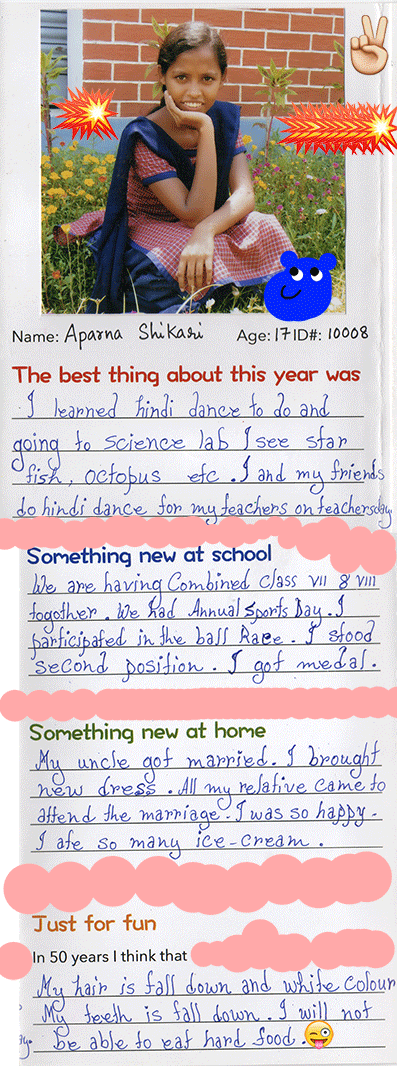 Name: Aparna Shikari Age: 17 ID#: 10008
The best thing about this year was
I learned hindi dance to do and
going to science lab I see star
fish, octopus etc. I and my friends
do hindi dance for my teachers on teachersday
Something new at school
We are having Combined class VII & VIII
togother. We had Annual Sports Day. I
participated in the ball Race. I stood
second position. I got medal.
Something new at home
My uncle got married. I brought
new dress. All my relative came to
attend the marriage. I was so happy.
I ate so many ice-cream.
Just for fun
In 50 years I think that
My hair is fall down and white colour
My teeth is fall down. I will not
be able to eat hard food.